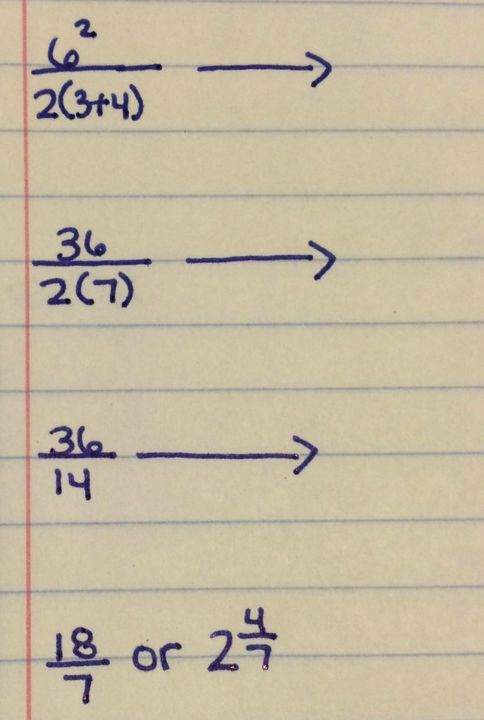 6²/2(3+4) →
36/2(7) →
36/14 →
18/7 or 2 4/7